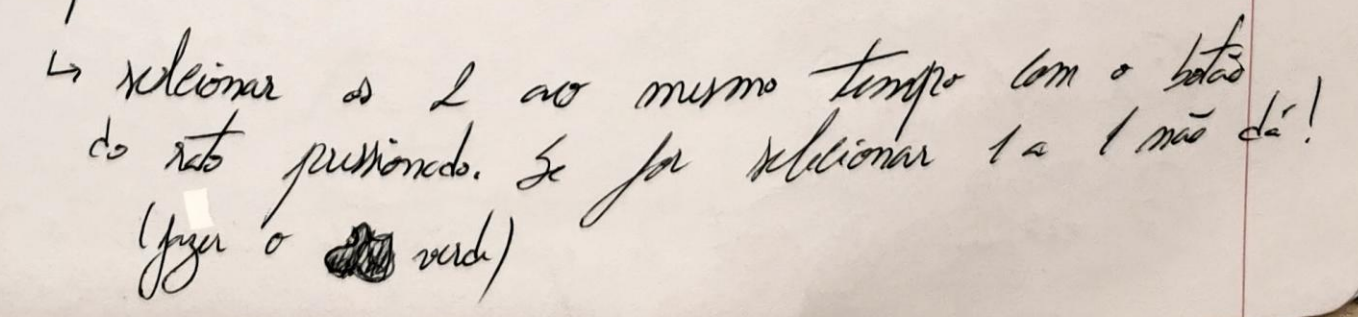 ↳ selecionar os 2 ao mesmo tempo com o botão
do rato pressionado. Se for selecionar 1 a 1 não dá!
(fazer o verde)